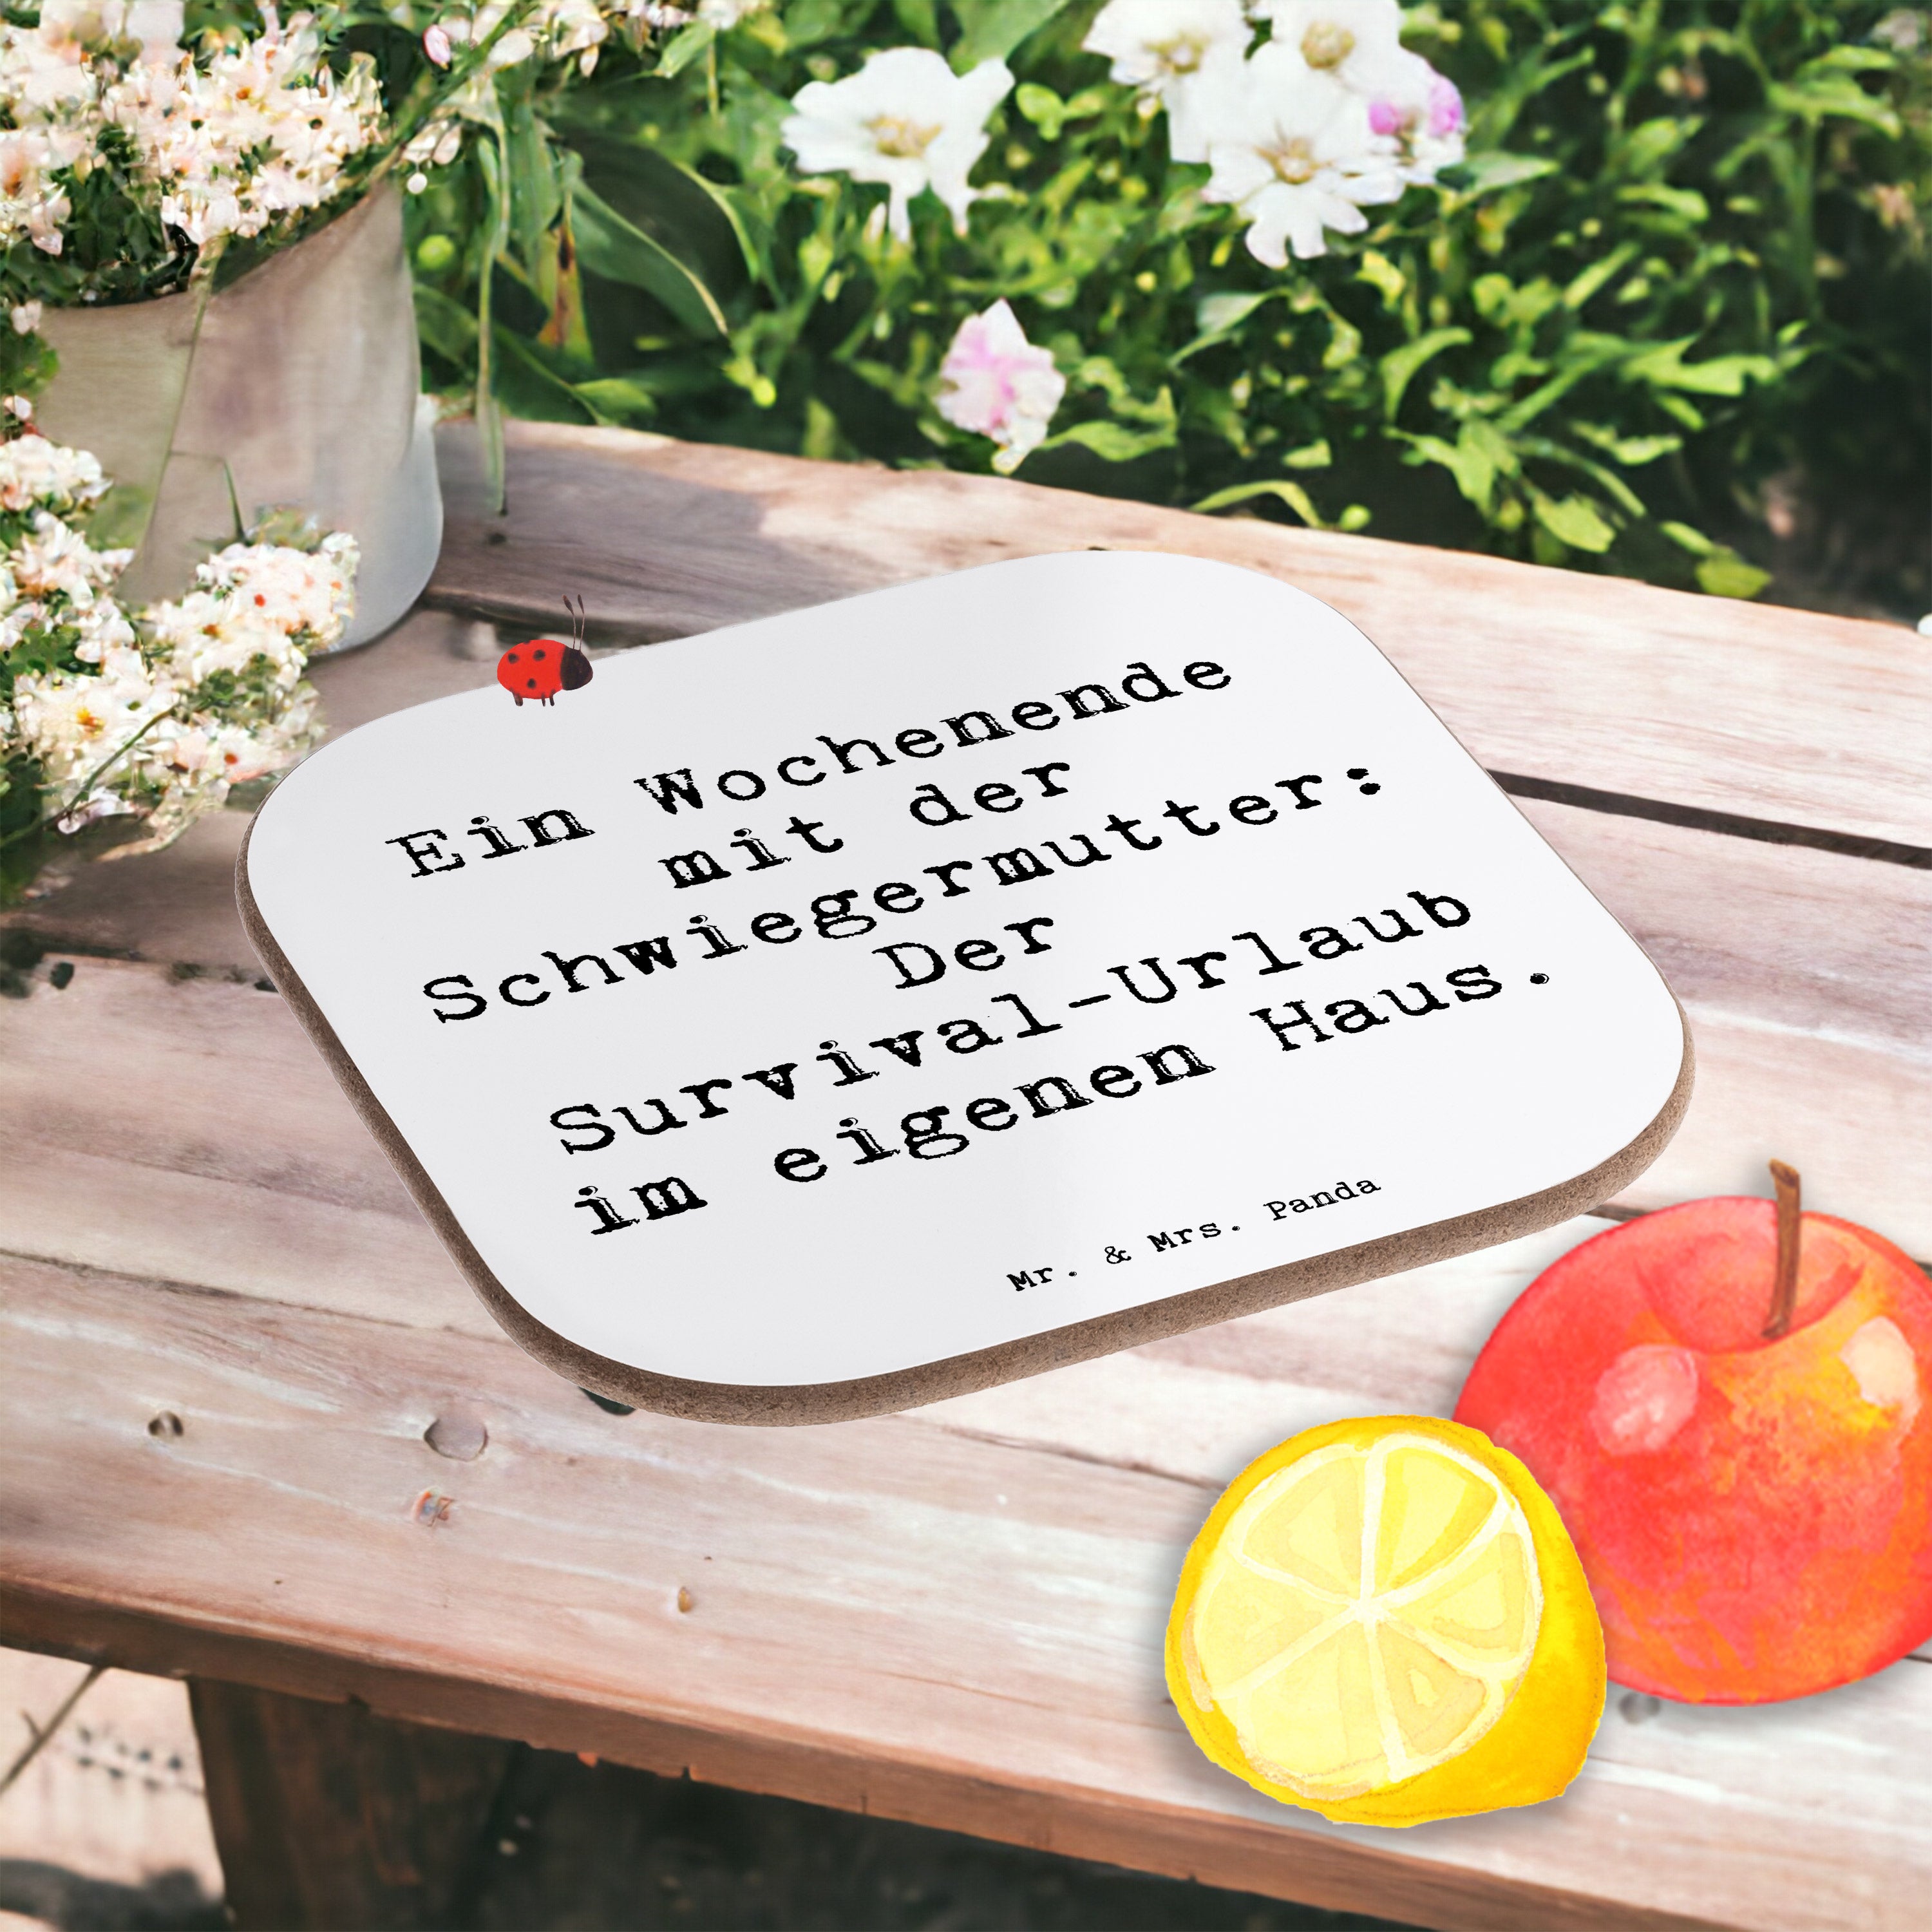 Ein Wochenende
mit der
Schwiegermutter:
Der
Survival-Urlaub
im eigenen Haus.
Mr. & Mrs. Panda